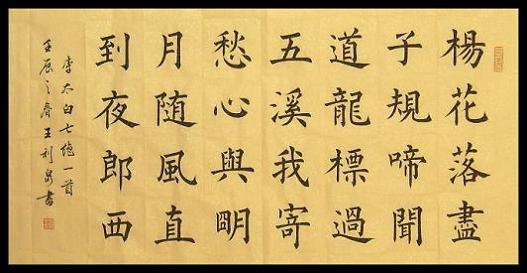 楊花落盡
子規啼聞
道龍標過
五溪我寄
愁心與明
月随風直
到夜郎西
李太白七绝一首
壬辰之春王利書